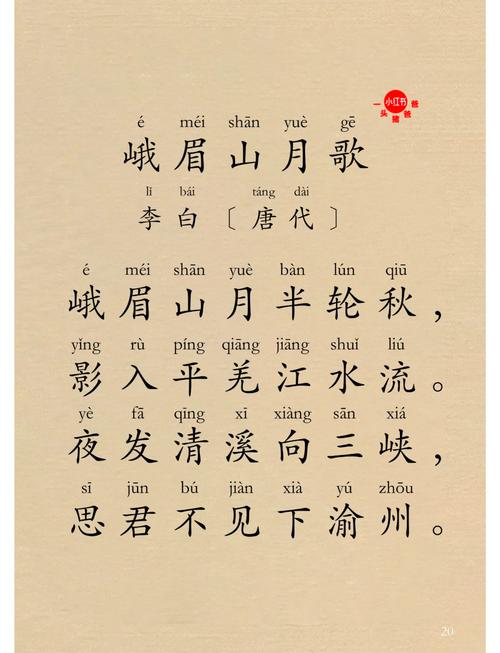 小红书
一头猪爸爸
é méi shān yuè gē
峨眉山月歌
lǐ bái táng dài
李白〔唐代〕
é méi shān yuè bàn lún qiū
峨眉山月半轮秋，
yǐng rù píng qiāng jiāng shuǐ liú
影入平羌江水流。
yè fā qīng xī xiàng sān xiá
夜发清溪向三峡，
sī jūn bú jiàn xià yú zhōu
思君不见下渝州。
20